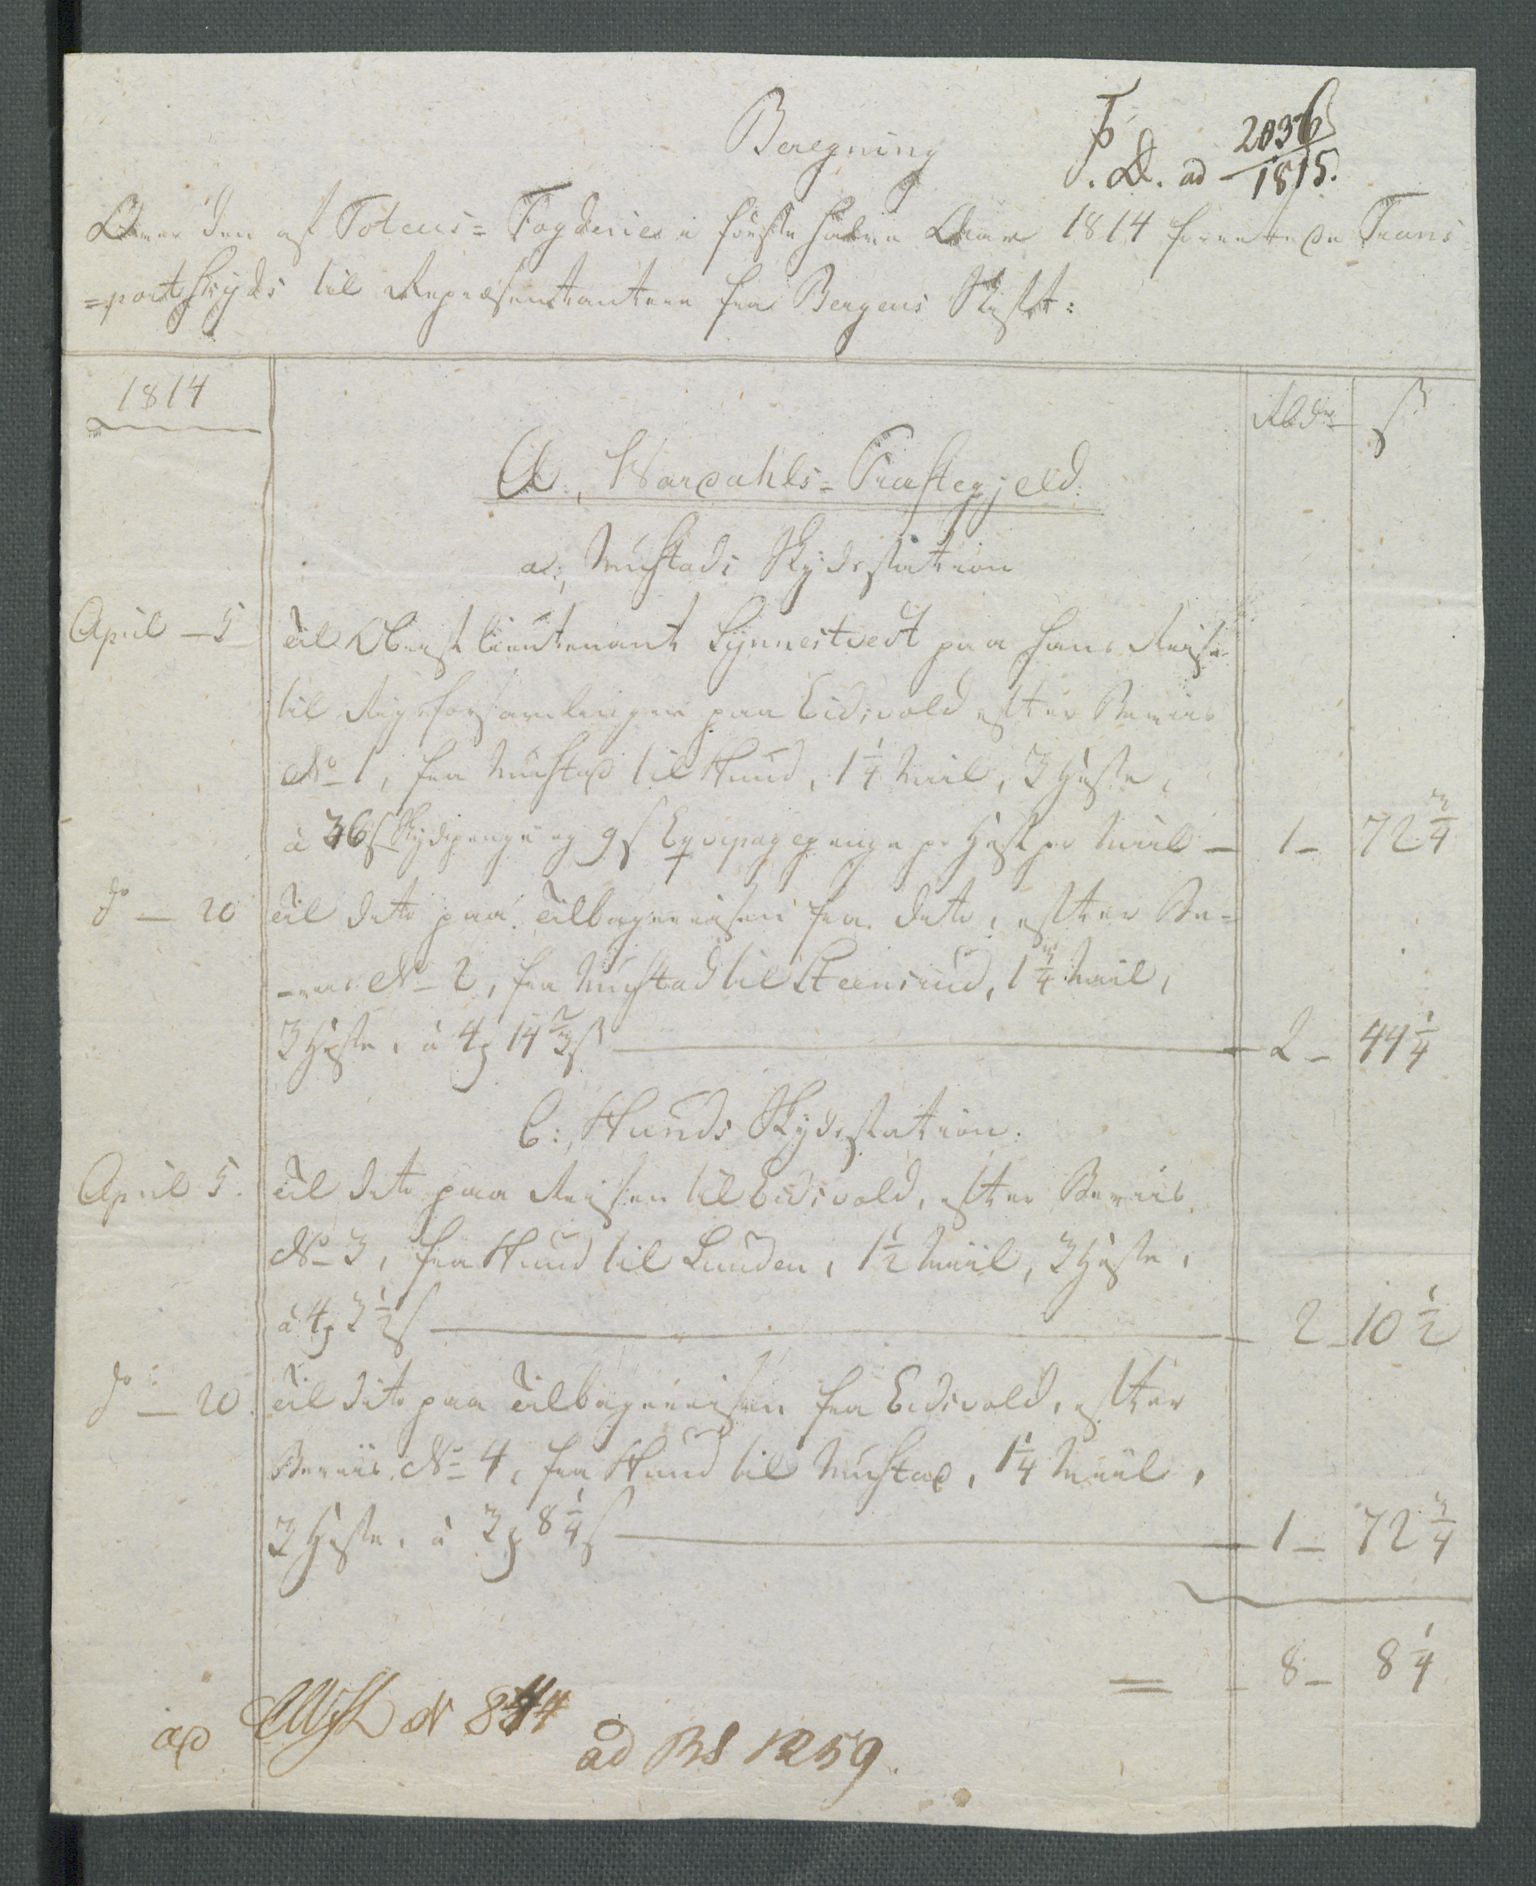 Beregning
D. ad 2036/1815.
Over den af Totens=Fogderie i første halve Aar 1814 forrettede Trans
=portskyds til Repræsentantere fra Bergens Stift:
1814
Rbdr
s
A., Wardahls=Præstegjeld.
a., Mustads Skydsstation
April — 5
Til Oberstlieutenant Lynnestvedt paa hans Reise
til Rigsforsamlingen paa Eidsvold efter Beviis
No 1, fra Mustad til Hund, 1 1/4 Miil, 3 Heste,
à 36 s Skydspenge og 9 s Eqvipagepenge pr Hest pr Miil — 1 — 72 3/4
do — 20
Til dito paa Tilbagereisen fra dito, efter Be=
-viis No 2, fra Mustad til Steensrud, 1 3/4 Miil,
3 Heste, à 4 14 2/3 s — 2 — 44 1/4
b:, Hunds Skydsstation.
April 5.
Til dito paa Reisen til Eidsvold, efter Beviis
No 3, fra Hund til Lunden, 1 1/2 Miil, 3 Heste,
à 4 3 1/2 s — 2 — 10 1/2
do — 20
Til dito paa Tilbagereisen fra Eidsvold, efter
Beviis No 4, fra Hund til Mustad, 1 1/4 Miil,
3 Heste, à 3 8 1/4 s — 1 — 72 3/4
= 8 — 8 1/4
ad N 844
ad BS 1259.